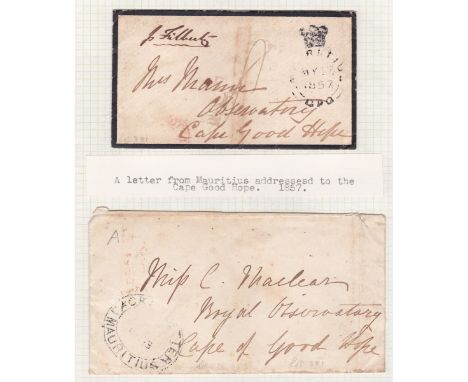 J. Filbert
Mrs Mann
Observatory
Cape Good Hope
1857
GPO
A letter from Mauritius addressesd to the
Cape Good Hope. 1857.
A
Miss C. Maclear
Royal Observatory
Cape of Good Hope
MAURITIUS